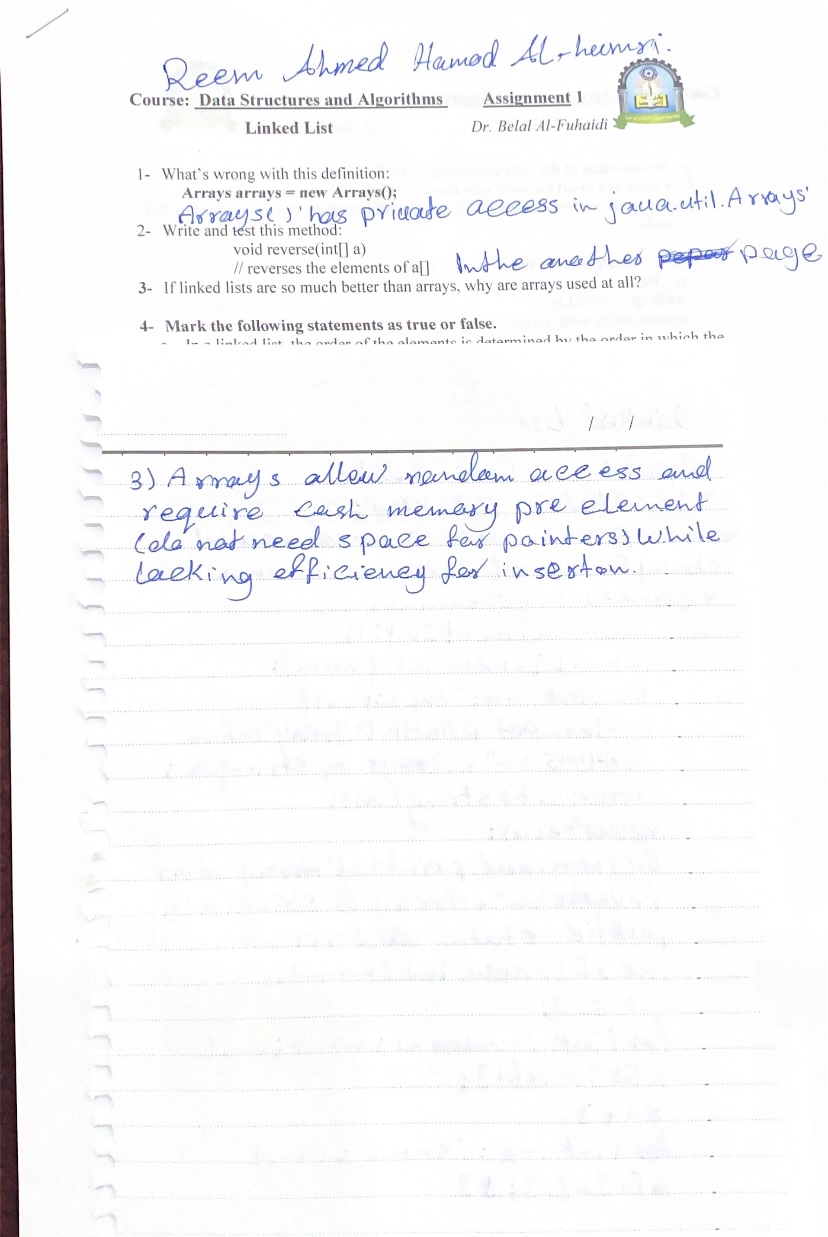 Reem Ahmed Hamod Al-heemsi.
Course: Data Structures and Algorithms Assignment 1
Linked List Dr. Belal Al-Fuhaidi
1- What's wrong with this definition:
Arrays arrays = new Arrays();
Arrays( )' has private access in java.util.Arrays'
2- Write and test this method:
void reverse(int[] a)
// reverses the elements of a[] In the anather peper page
3- If linked lists are so much better than arrays, why are arrays used at all?
4- Mark the following statements as true or false.
In a linked list, the order of the elements is determined by the order in which the
/ /
3) Arrays allow random access and
require cash memary pre element
(do not need space for painters) while
lacking efficiency for inserton.